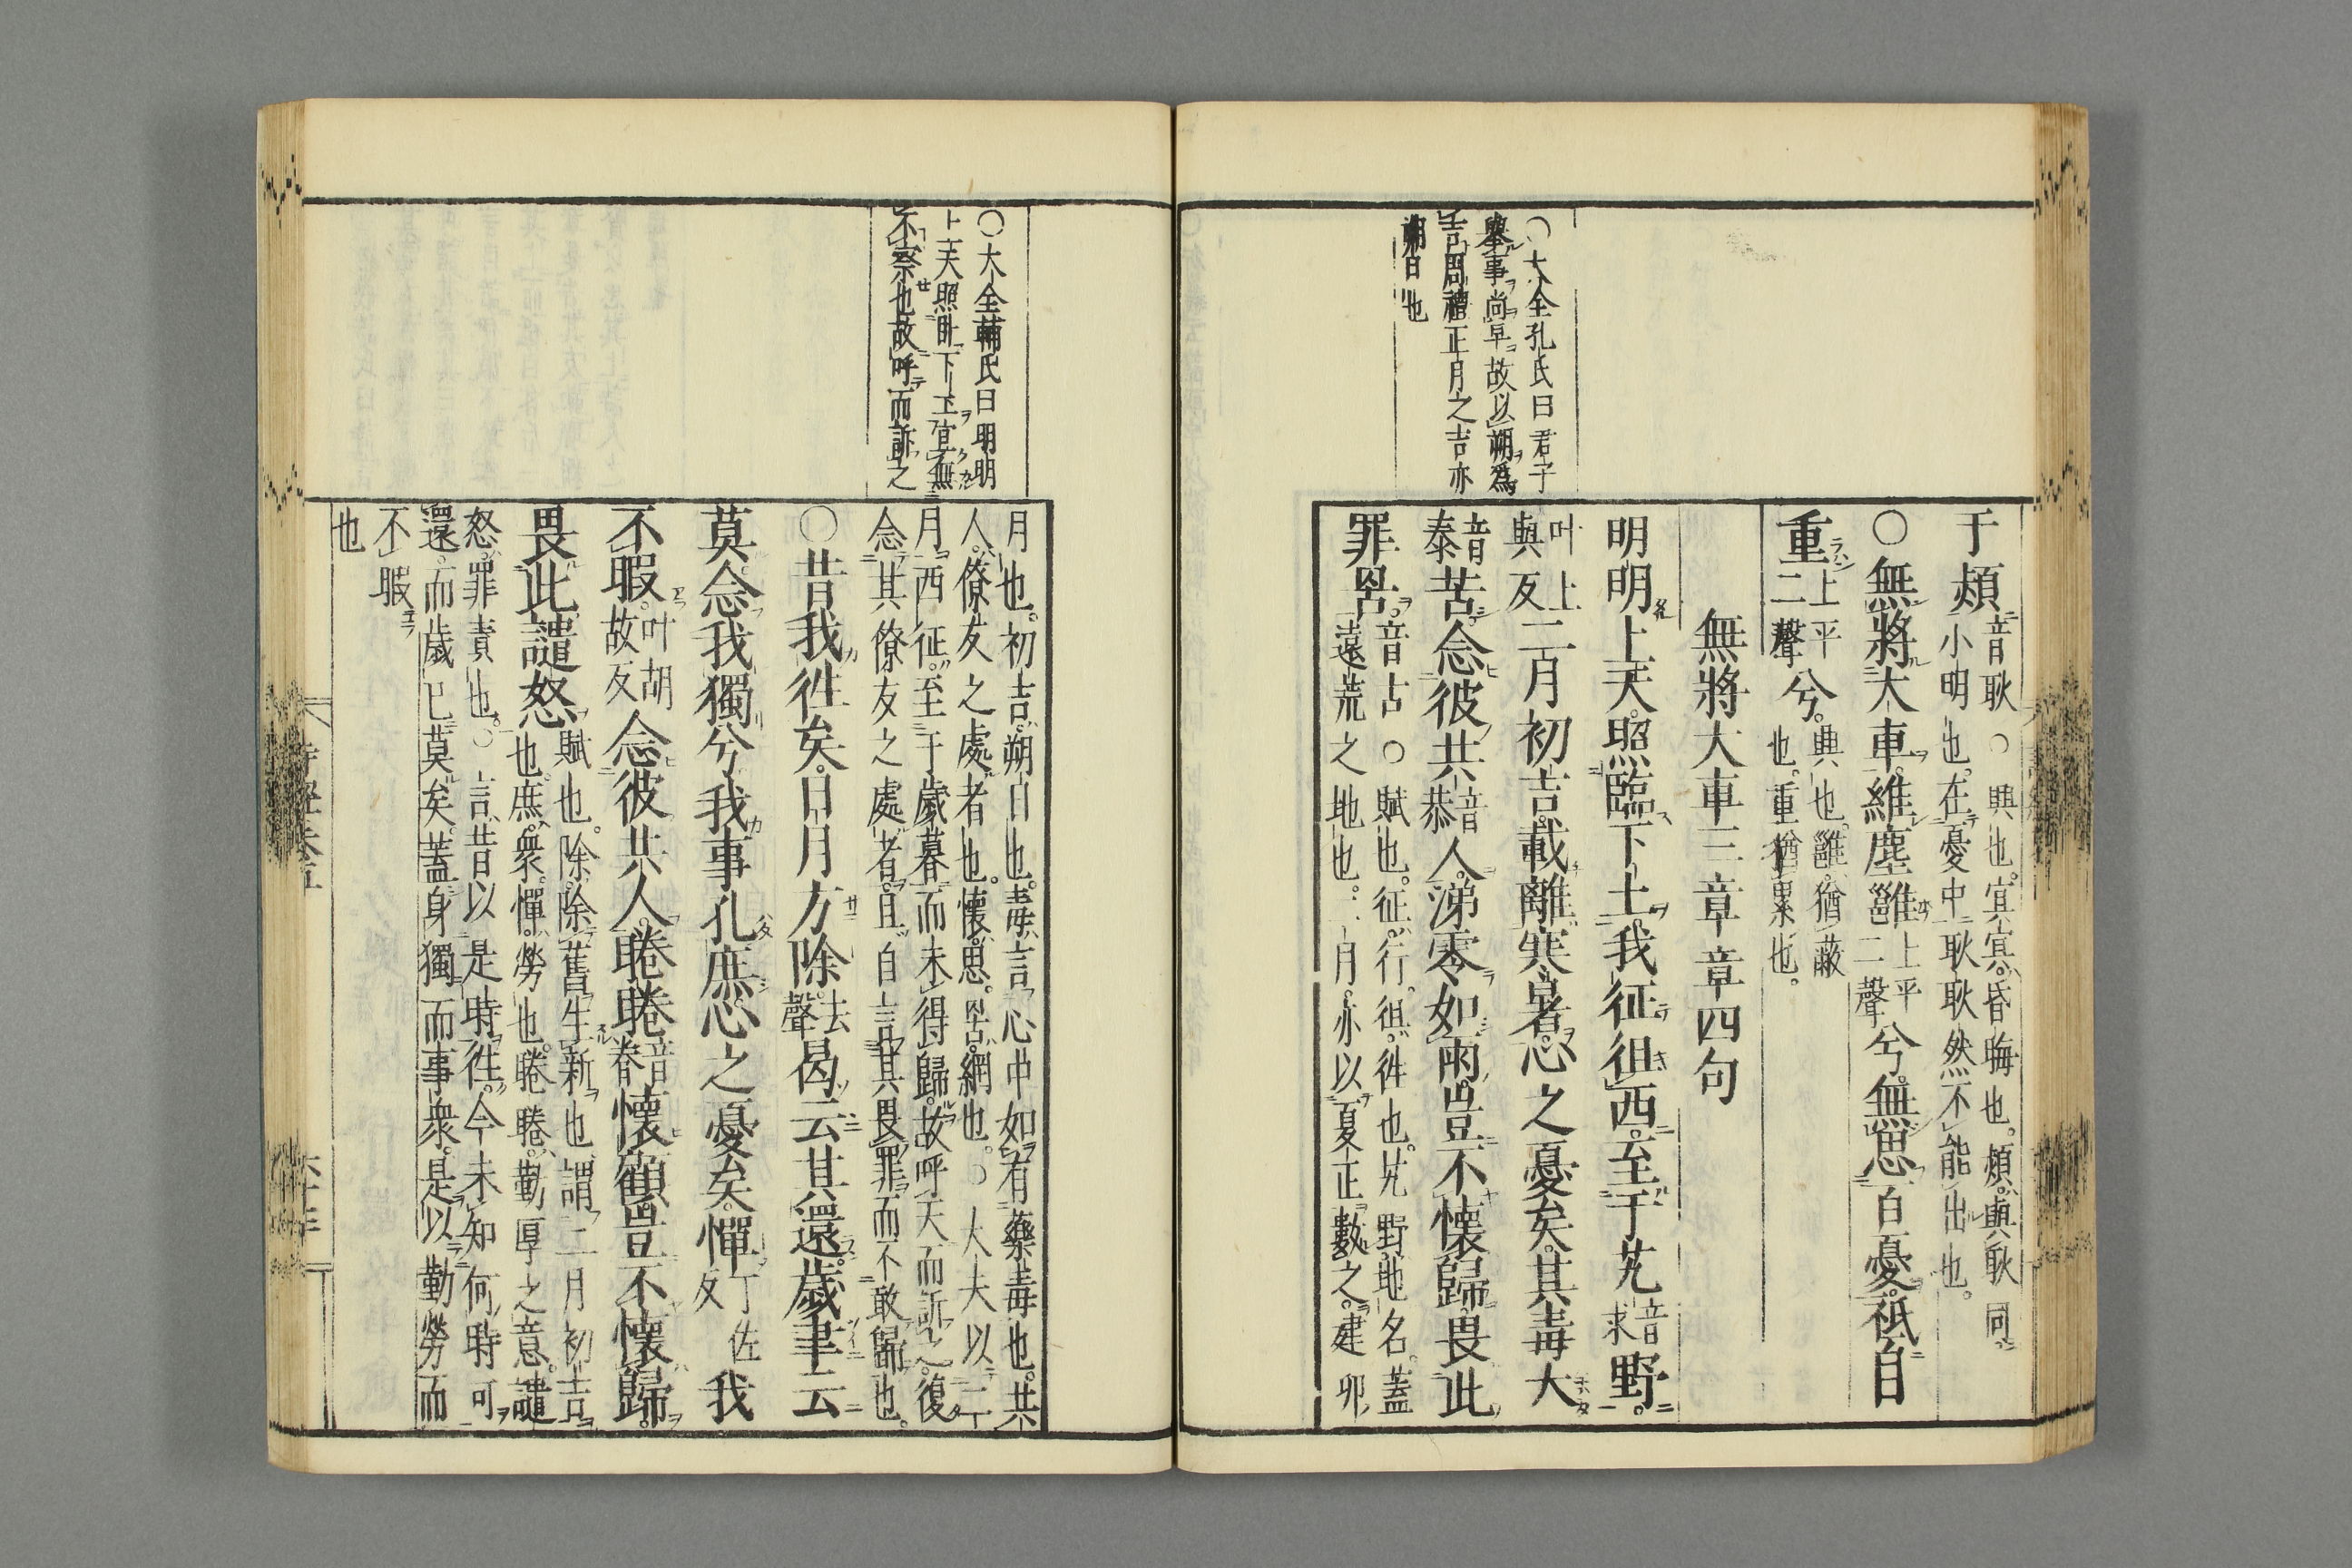 ○大全孔氏曰君子
舉事尚早故以朔爲
吉周禮正月之吉亦
朔日也
于熲音耿○興也冥冥昏晦也熲與耿同
小明也在憂中耿耿然不能出也
○無將大車維塵雝上平二聲兮無思百憂祇自
重上平二聲兮興也雝猶蔽也重猶累也
無將大車三章章四句
明明上天照臨下土我征徂西至于艽音求野
叶上與反二月初吉載離寒暑心之憂矣其毒大
音泰苦念彼共音恭人涕零如雨豈不懷歸畏此
罪罟音古○賦也征行徂徃也艽野地名蓋
遠荒之地也二月亦以夏正數之建卯
○大全輔氏曰明明
上天照臨下土宜無
不察也故呼而訴之
月也初吉朔日也毒言心中如有藥毒也共
人僚友之處者也懷思罟網也○大夫以二
月西征至于歲暮而未得歸故呼天而訴之復
念其僚友之處者且自言其畏罪而不敢歸也
○昔我徃矣日月方除去聲曷云其還歲聿云
莫念我獨兮我事孔庶心之憂矣憚丁佐反我
不暇叶胡故反念彼共人睠睠音眷懷顧豈不懷歸
畏此譴怒賦也除除舊生新也謂二月初吉
也庶衆憚勞也睠睠勤厚之意譴
怒罪責也○言昔以是時徃今未知何時可
還而歲已莫矣蓋身獨而事衆是以勤勞而
不暇
也